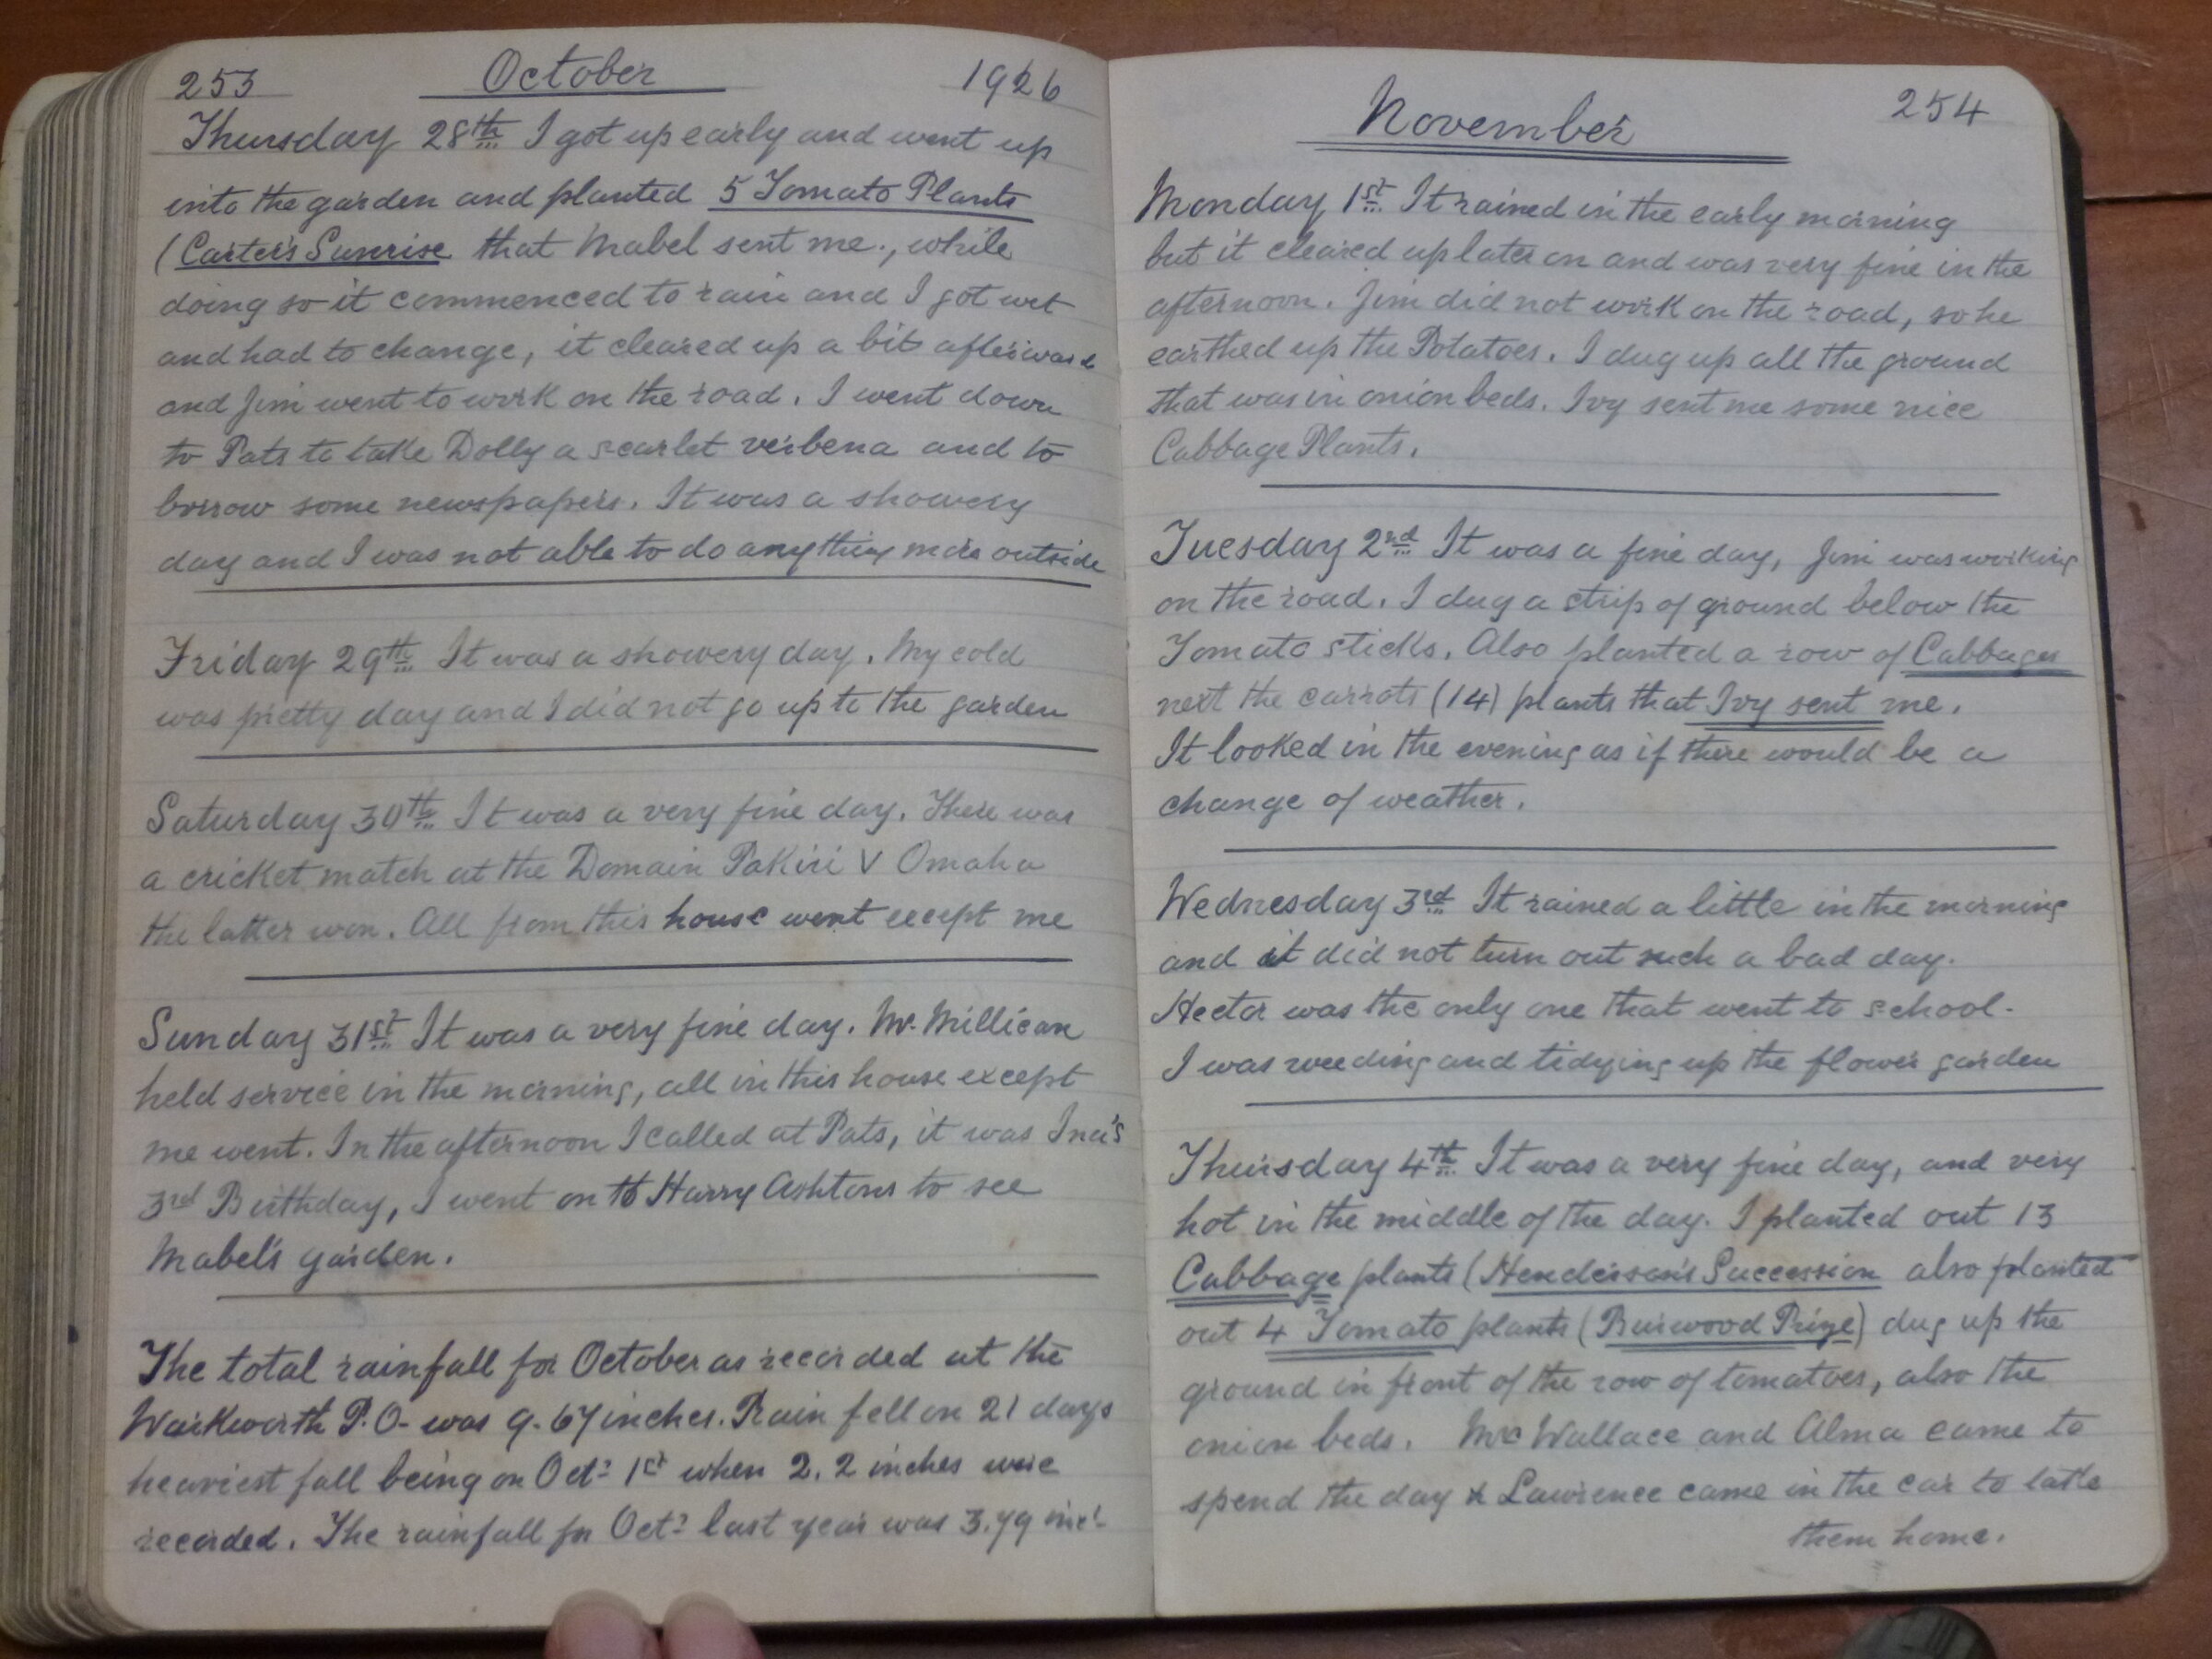 253 October 1926
Thursday 28th I got up early and went up
into the garden and planted 5 Tomato Plants
(Carter's Sunrise that Mabel sent me., while
doing so it commenced to rain and I got wet
and had to change, it cleared up a bit afterward
and Jim went to work on the road. I went down
to Pats to take Dolly a scarlet verbena and to
borrow some newspapers. It was a showery
day and I was not able to do anything more outside
Friday 29th It was a showery day. My cold
was pretty day and I did not go up to the garden
Saturday 30th It was a very fine day. There was
a cricket match at the Domain Pakiri V Omaha
the latter won. All from this house went except me
Sunday 31st It was a very fine day. Mr. Millican
held service in the morning, all in this house except
me went. In the afternoon I called at Pats, it was Ina's
3rd Birthday, I went on to Harry Ashtons to see
Mabel's garden.
The total rainfall for October as recorded at the
Warkworth P.O- was 9.67 inches. Rain fell on 21 days
heaviest fall being on Oct: 1st when 2.2 inches were
recorded. The rainfall for Oct: last year was 3.79 inc:
254
November
Monday 1st It rained in the early morning
but it cleared up later on and was very fine in the
afternoon. Jim did not work on the road, so he
earthed up the Potatoes. I dug up all the ground
that was in onion beds. Ivy sent me some nice
Cabbage Plants.
Tuesday 2nd It was a fine day, Jim was working
on the road. I dug a strip of ground below the
Tomato sticks. Also planted a row of Cabbages
next the carrots (14) plants that Ivy sent me.
It looked in the evening as if there would be a
change of weather.
Wednesday 3rd It rained a little in the morning
and it did not turn out such a bad day.
Hector was the only one that went to school.
I was weeding and tidying up the flower garden
Thursday 4th It was a very fine day, and very
hot in the middle of the day. I planted out 13
Cabbage plants (Henderson's Succession also planted
out 4 Tomato plants (Burwood Prize) dug up the
ground in front of the row of tomatoes, also the
onion beds. Mrs Wallace and Alma came to
spend the day & Lawrence came in the car to take
them home.